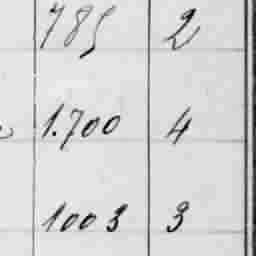 785 2
1.700 4
1003 3